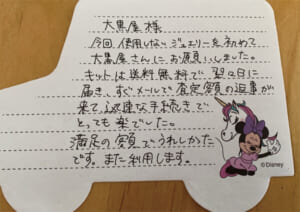 大黒屋様
今回使用しないジュエリーを初めて
大黒屋さんにお願いしました。
キットは送料無料で翌々日に
届き、すぐメールで査定額の返事が
来て、迅速な手続きで
とっても楽でした。
満足の額でうれしかった
です。また利用します。
©Disney